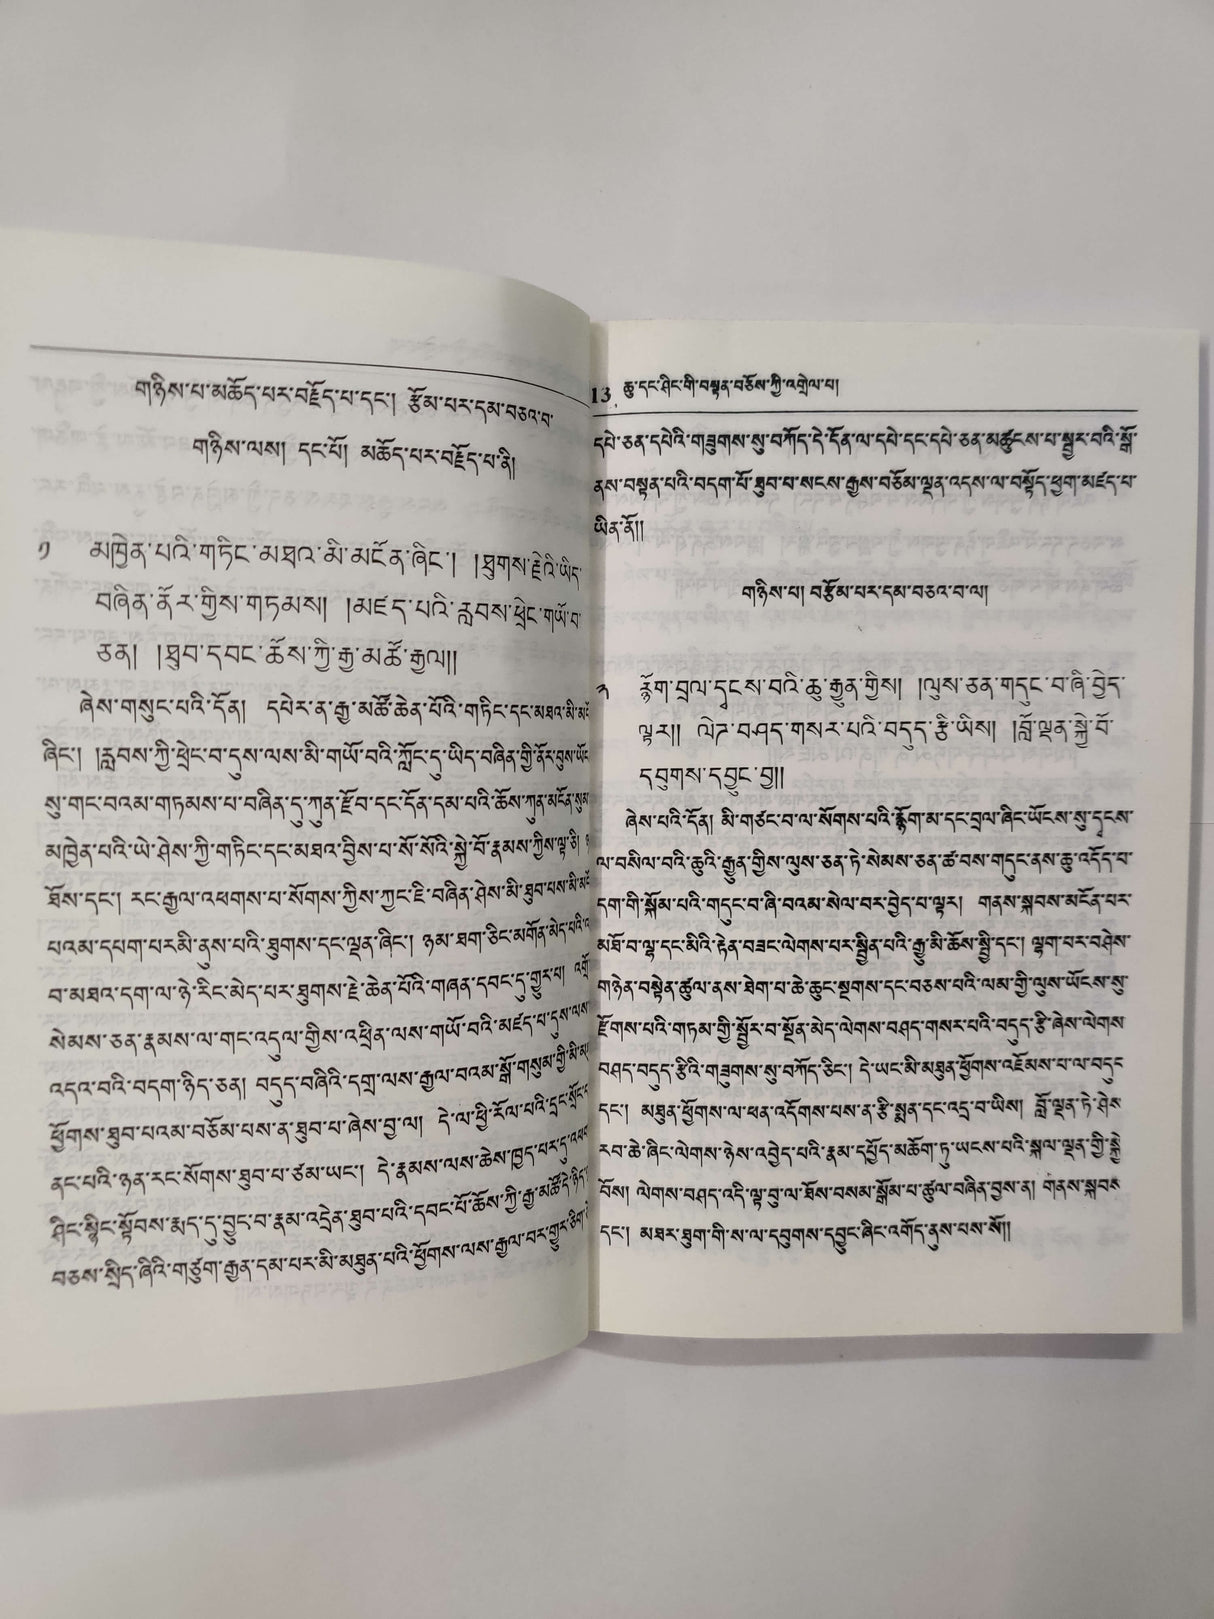 གཉིས་པ་མཆོད་པར་བརྗོད་པ་དང་། རྩོམ་པར་དམ་བཅའ་བ་
གཉིས་ལས། དང་པོ། མཆོད་པར་བརྗོད་པ་ནི།
༡ མཁྱེན་པའི་གཏིང་མཐའ་མི་མངོན་ཞིང་། །ཐུགས་རྗེའི་ཡིད་
བཞིན་ནོར་གྱིས་གཏམས། །མཛད་པའི་རླབས་ཕྲེང་གཡོ་བ་
ཅན། །ཐུབ་དབང་ཆོས་ཀྱི་རྒྱ་མཚོ་རྒྱལ།།
ཞེས་གསུང་པའི་དོན། དཔེར་ན་རྒྱ་མཚོ་ཆེན་པོའི་གཏིང་དང་མཐའ་མི་
ཞིང་། །རླབས་ཀྱི་ཕྲེང་བ་དུས་ལས་མི་གཡོ་བའི་ཀློང་དུ་ཡིད་བཞིན་གྱི་ནོར་བུས་ཡོང
སུ་གང་བའམ་གཏམས་པ་བཞིན་དུ་ཀུན་རྫོབ་དང་དོན་དམ་པའི་ཆོས་ཀུན་མངོན་སུམ
མཁྱེན་པའི་ཡེ་ཤེས་ཀྱི་གཏིང་དང་མཐའ་བྱིས་པ་སོ་སོའི་སྐྱེ་བོ་རྣམས་ཀྱིས་ལྟ་ཅི།
ཐོས་དང་། རང་རྒྱལ་འཕགས་པ་སོགས་ཀྱིས་ཀྱང་ཇི་བཞིན་ཤེས་མི་ཐུབ་པས་མི་
པའམ་དཔག་པར་མི་ནུས་པའི་ཐུགས་དང་ལྡན་ཞིང་། ཉམ་ཐག་ཅིང་མགོན་མེད་པའི་
བ་མཐའ་དག་ལ་ཉེ་རིང་མེད་པར་ཐུགས་རྗེ་ཆེན་པོའི་གཞན་དབང་དུ་གྱུར་པ། འགྲོ
སེམས་ཅན་རྣམས་ལ་གང་འདུལ་གྱིས་འཕྲིན་ལས་གཡོ་བའི་མཛད་པ་དུས་ལས་
འདའ་བའི་བདག་ཉིད་ཅན། བདུད་བཞིའི་དགྲ་ལས་རྒྱལ་བའམ་སྒོ་གསུམ་གྱི་མི་
ཕྱོགས་ཐུབ་པའམ་བཅོམ་པས་ན་ཐུབ་པ་ཞེས་བྱ་ལ། དེ་ལ་ཕྱི་རོལ་པའི་དྲང་སྲོང་
ནང་པའི་ཉན་རང་སོགས་ཐུབ་པ་ཙམ་ཡང་། དེ་རྣམས་ལས་ཆེས་ཁྱད་པར་དུ་འཕག
ཤིང་སྙིང་སྟོབས་རྨད་དུ་བྱུང་བ་རྣམ་འདྲེན་ཐུབ་པའི་དབང་པོ་ཆོས་ཀྱི་རྒྱ་མཚོ་དེ་ཉིད་
བཅས་སྲིད་ཞིའི་གཙུག་རྒྱན་དམ་པར་མི་མཐུན་པའི་ཕྱོགས་ལས་རྒྱལ་བར་གྱུར་ཅིག་
13 ཆུ་དང་ཤིང་གི་བསྟན་བཅོས་ཀྱི་འགྲེལ་པ།
དཔེ་ཅན་དཔེའི་གཟུགས་སུ་བཀོད་དེ་དོན་ལ་དཔེ་དང་དཔེ་ཅན་མཚུངས་པ་སྦྱར་བའི་སྒོ་
ནས་བསྟན་པའི་བདག་པོ་ཐུབ་པ་སངས་རྒྱས་བཅོམ་ལྡན་འདས་ལ་བསྟོད་ཕྱག་མཛད་པ་
ཡིན་ནོ།།
གཉིས་པ། བརྩོམ་པར་དམ་བཅའ་བ་ལ།
༢ རྙོག་བྲལ་དྭངས་བའི་ཆུ་རྒྱུན་གྱིས། །ལུས་ཅན་གདུང་བ་ཞི་བྱེད་
ལྟར།། ལེགས་བཤད་གསར་པའི་བདུད་རྩི་ཡིས། །བློ་ལྡན་སྐྱེ་བོ་
དབུགས་དབྱུང་བྱ།།
ཞེས་པའི་དོན། མི་གཙང་བ་ལ་སོགས་པའི་རྙོག་མ་དང་བྲལ་ཞིང་ཡོངས་སུ་དྭངས་
ལ་བསིལ་བའི་ཆུའི་རྒྱུན་གྱིས་ལུས་ཅན་ཏེ་སེམས་ཅན་ཚ་བས་གདུང་ནས་ཆུ་འདོད་བ་
དག་གི་སྐོམ་པའི་གདུང་བ་ཞི་བའམ་སེལ་བར་བྱེད་པ་ལྟར། གནས་སྐབས་མངོན་པར་
མཐོ་བ་ལྷ་དང་མིའི་རྟེན་བཟང་ལེགས་པར་སྦྱིན་པའི་རྒྱུ་མི་ཆོས་སྤྱི་དང་། ལྷག་པར་བཤེས་
གཉེན་བསྟེན་ཚུལ་ནས་ཐེག་པ་ཆེ་ཆུང་སྔགས་དང་བཅས་པའི་ལམ་གྱི་ལུས་ཡོངས་སུ་
རྫོགས་པའི་གཏམ་གྱི་སྦྱོར་བ་སྔོན་མེད་ལེགས་བཤད་གསར་པའི་བདུད་རྩི་ཞེས་ལེགས་
བཤད་བདུད་རྩིའི་གཟུགས་སུ་བཀོད་ཅིང་། དེ་ཡང་མི་མཐུན་ཕྱོགས་འཇོམས་པ་ལ་བདུད
དང་། མཐུན་ཕྱོགས་ལ་ཕན་འདོགས་པས་ན་རྩི་སྨན་དང་འདྲ་བ་ཡིས། བློ་ལྡན་ཏེ་ཤེས་
རབ་ཆེ་ཞིང་ལེགས་ཉེས་འབྱེད་པའི་རྣམ་དཔྱོད་མཆོག་ཏུ་ཡངས་པའི་སྐལ་ལྡན་གྱི་སྐྱེ་
བོས། ལེགས་བཤད་འདི་ལྟ་བུ་ལ་ཐོས་བསམ་སྒོམ་པ་ཚུལ་བཞིན་བྱས་ན། གནས་སྐབས
དང་། མཐར་ཐུག་གི་ས་ལ་དབུགས་དབྱུང་ཞིང་འགོད་ནུས་པས་སོ།།